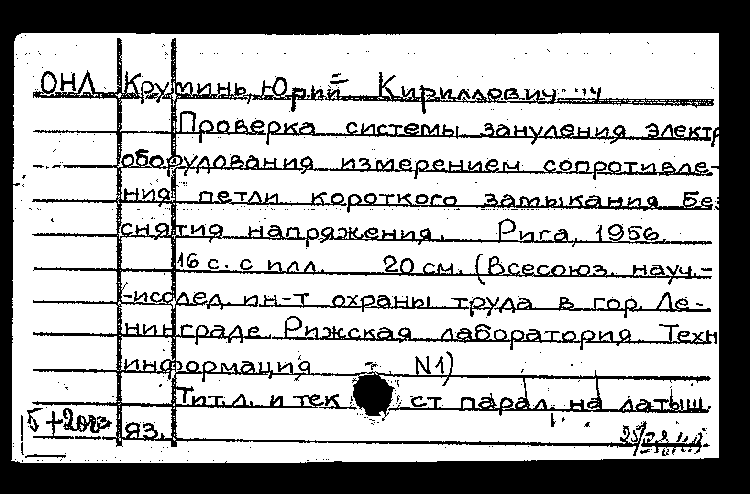 ОНЛ Круминь, Юрий Кириллович
Проверка системы зануления электр
оборудования измерением сопротивле-
ния петли короткого замыкания без
снятия напряжения. Рига, 1956.
16 с. с илл. 20 см. (Всесоюз. науч.-
-исслед. ин-т охраны труда в гор. Ле-
нинграде. Рижская лаборатория. Техн
информация N1)
Тит. л. и текст парал. на латыш.
яз.